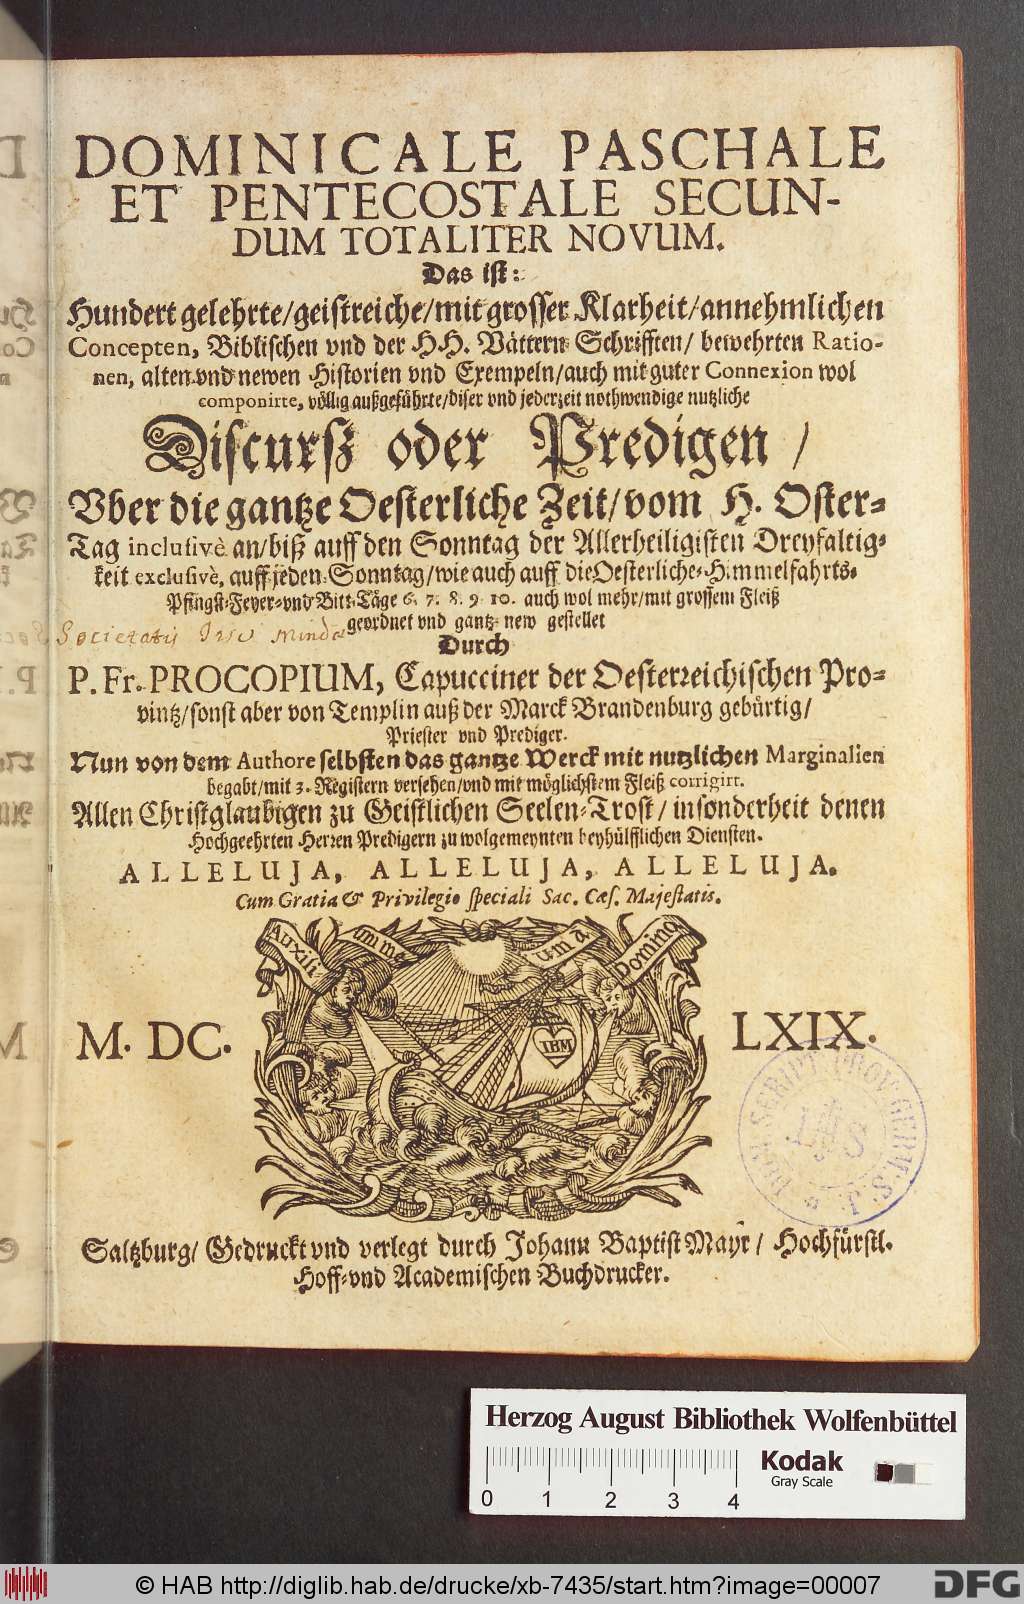 DOMINICALE PASCHALE
ET PENTECOSTALE SECUN-
DUM TOTALITER NOVUM.
Das ist:
Hundert gelehrte/geistreiche/mit grosser Klarheit/annehmlichen
Concepten, Biblischen vnd der HH. Vättern Schrifften/ bewehrten Ratio-
nen, alten vnd newen Historien vnd Exempeln/auch mit guter Connexion wol
componirte, völlig außgeführte/diser vnd jederzeit nothwendige nutzliche
Discursz oder Predigen/
Vber die gantze Oesterliche Zeit/vom H. Oster-
Tag inclusivè an/biß auff den Sonntag der Allerheiligisten Dreyfaltig-
keit exclusivè, auff jeden Sonntag/wie auch auff die Oesterliche-Himmelfahrts-
Pfingst-Feyer-vnd Bitt-Täge 6. 7. 8. 9. 10. auch wol mehr/mit grossem Fleiß
geordnet vnd gantz new gestellet
Societatis Jesu
Durch
P. Fr. PROCOPIUM, Capucciner der Oesterreichischen Pro-
vintz/sonst aber von Templin auß der Marck Brandenburg gebürtig/
Priester vnd Prediger.
Nun von dem Authore selbsten das gantze Werck mit nutzlichen Marginalien
begabt/mit 3. Registern versehen/vnd mit möglichstem Fleiß corrigirt.
Allen Christglaubigen zu Geistlichen Seelen-Trost/ insonderheit denen
Hochgeehrten Herren Predigern zu wolgemeynten beyhülfflichen Diensten.
ALLELUJA, ALLELUJA, ALLELUJA.
Cum Gratia & Privilegio speciali Sac. Cæs. Majestatis.
Auxili um me um a Domino
IHM
M. DC. LXIX.
SCRIPT. PROV. GERM. S. J.
Saltzburg/ Gedruckt vnd verlegt durch Johann Baptist Mayr/ Hochfürstl.
Hoff-vnd Academischen Buchdrucker.
Herzog August Bibliothek Wolfenbüttel
Kodak
Gray Scale
0 1 2 3 4
© HAB http://diglib.hab.de/drucke/xb-7435/start.htm?image=00007
DFG